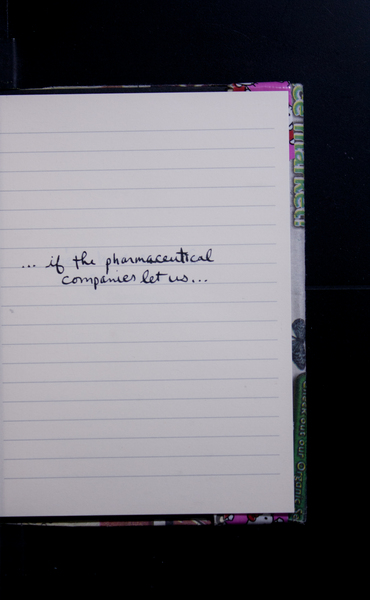 ... if the pharmaceutical
companies let us...